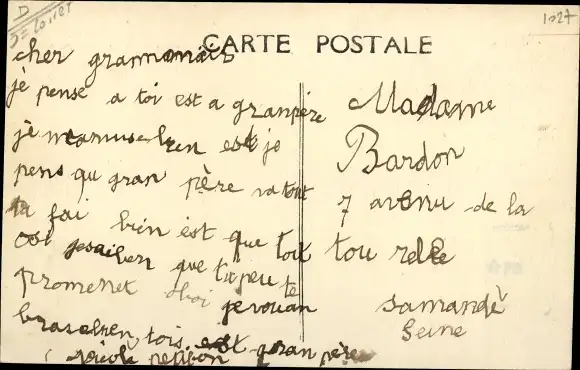 D
1027
CARTE POSTALE
cher granmamair
je pense a toi est a granpère
je mamuse bien est je
pens qu gran père va tout
ta fai bien est que toit
osi jesaiben que tu peu te
promenet
jevouan
brasebien tois est gran père
petibon
Madame
Bardon
7 avenu de la
tourelle
samandè
Seine